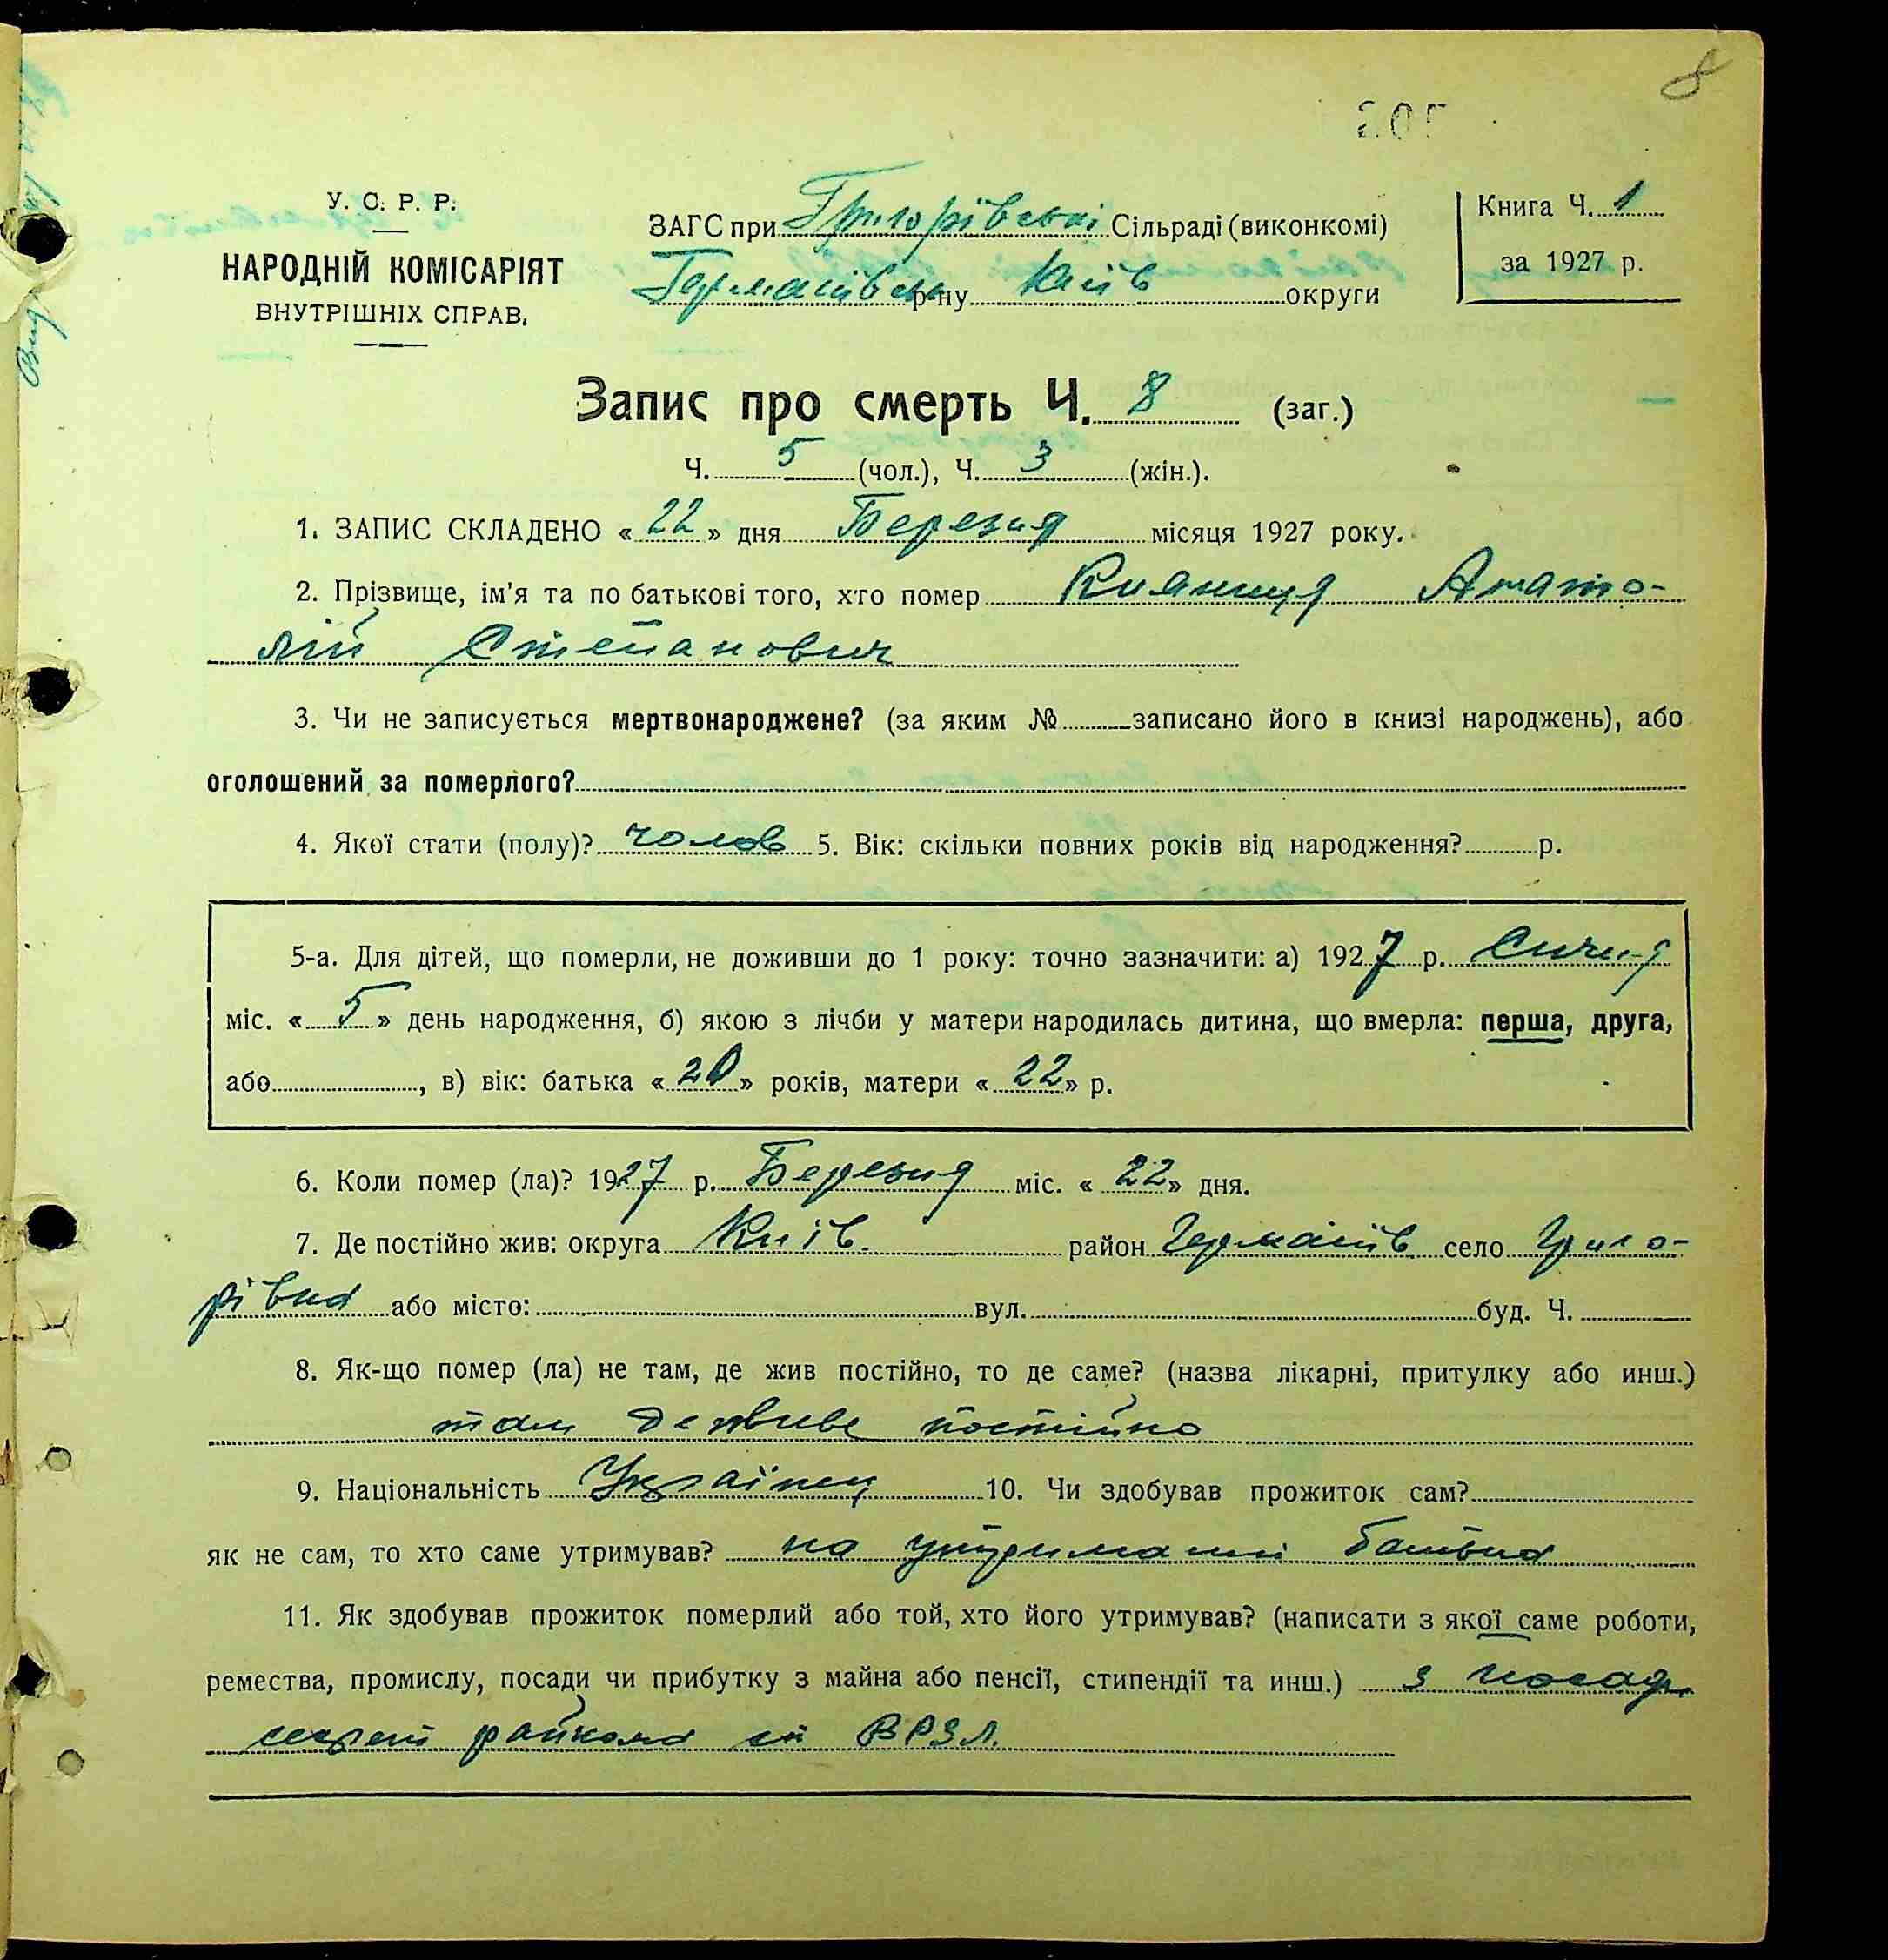 8
У. С. Р. Р.
НАРОДНІЙ КОМІСАРІЯТ
ВНУТРІШНІХ СПРАВ.
ЗАГС при Григорівські Сільраді (виконкомі)
Германівськ р-ну Київ округи
Книга Ч. 1
за 1927 р.
Запис про смерть Ч. 8 (заг.)
Ч. 5 (чол.), Ч. 3 (жін.).
1. ЗАПИС СКЛАДЕНО « 22 » дня Березня місяця 1927 року.
2. Прізвище, ім'я та по батькові того, хто помер Кияниця Анато-
лій Степанович
3. Чи не записується мертвонароджене? (за яким № записано його в книзі народжень), або
оголошений за померлого?
4. Якої стати (полу)? чолов 5. Вік: скільки повних років від народження? р.
5-а. Для дітей, що померли, не доживши до 1 року: точно зазначити: а) 1927 р. Січня
міс. « 5 » день народження, б) якою з лічби у матери народилась дитина, що вмерла: перша, друга,
або , в) вік: батька « 20 » років, матери « 22 » р.
6. Коли помер (ла)? 1927 р. Березня міс. « 22 » дня.
7. Де постійно жив: округа Київ. район Германів село Григо-
рівка або місто: вул. буд. Ч.
8. Як-що помер (ла) не там, де жив постійно, то де саме? (назва лікарні, притулку або инш.)
там де живе постійно
9. Національність Українец 10. Чи здобував прожиток сам?
як не сам, то хто саме утримував? на утриманні батька
11. Як здобував прожиток померлий або той, хто його утримував? (написати з якої саме роботи,
ремества, промислу, посади чи прибутку з майна або пенсії, стипендії та инш.) з посад.
секрет райкома ВРЗЛ.